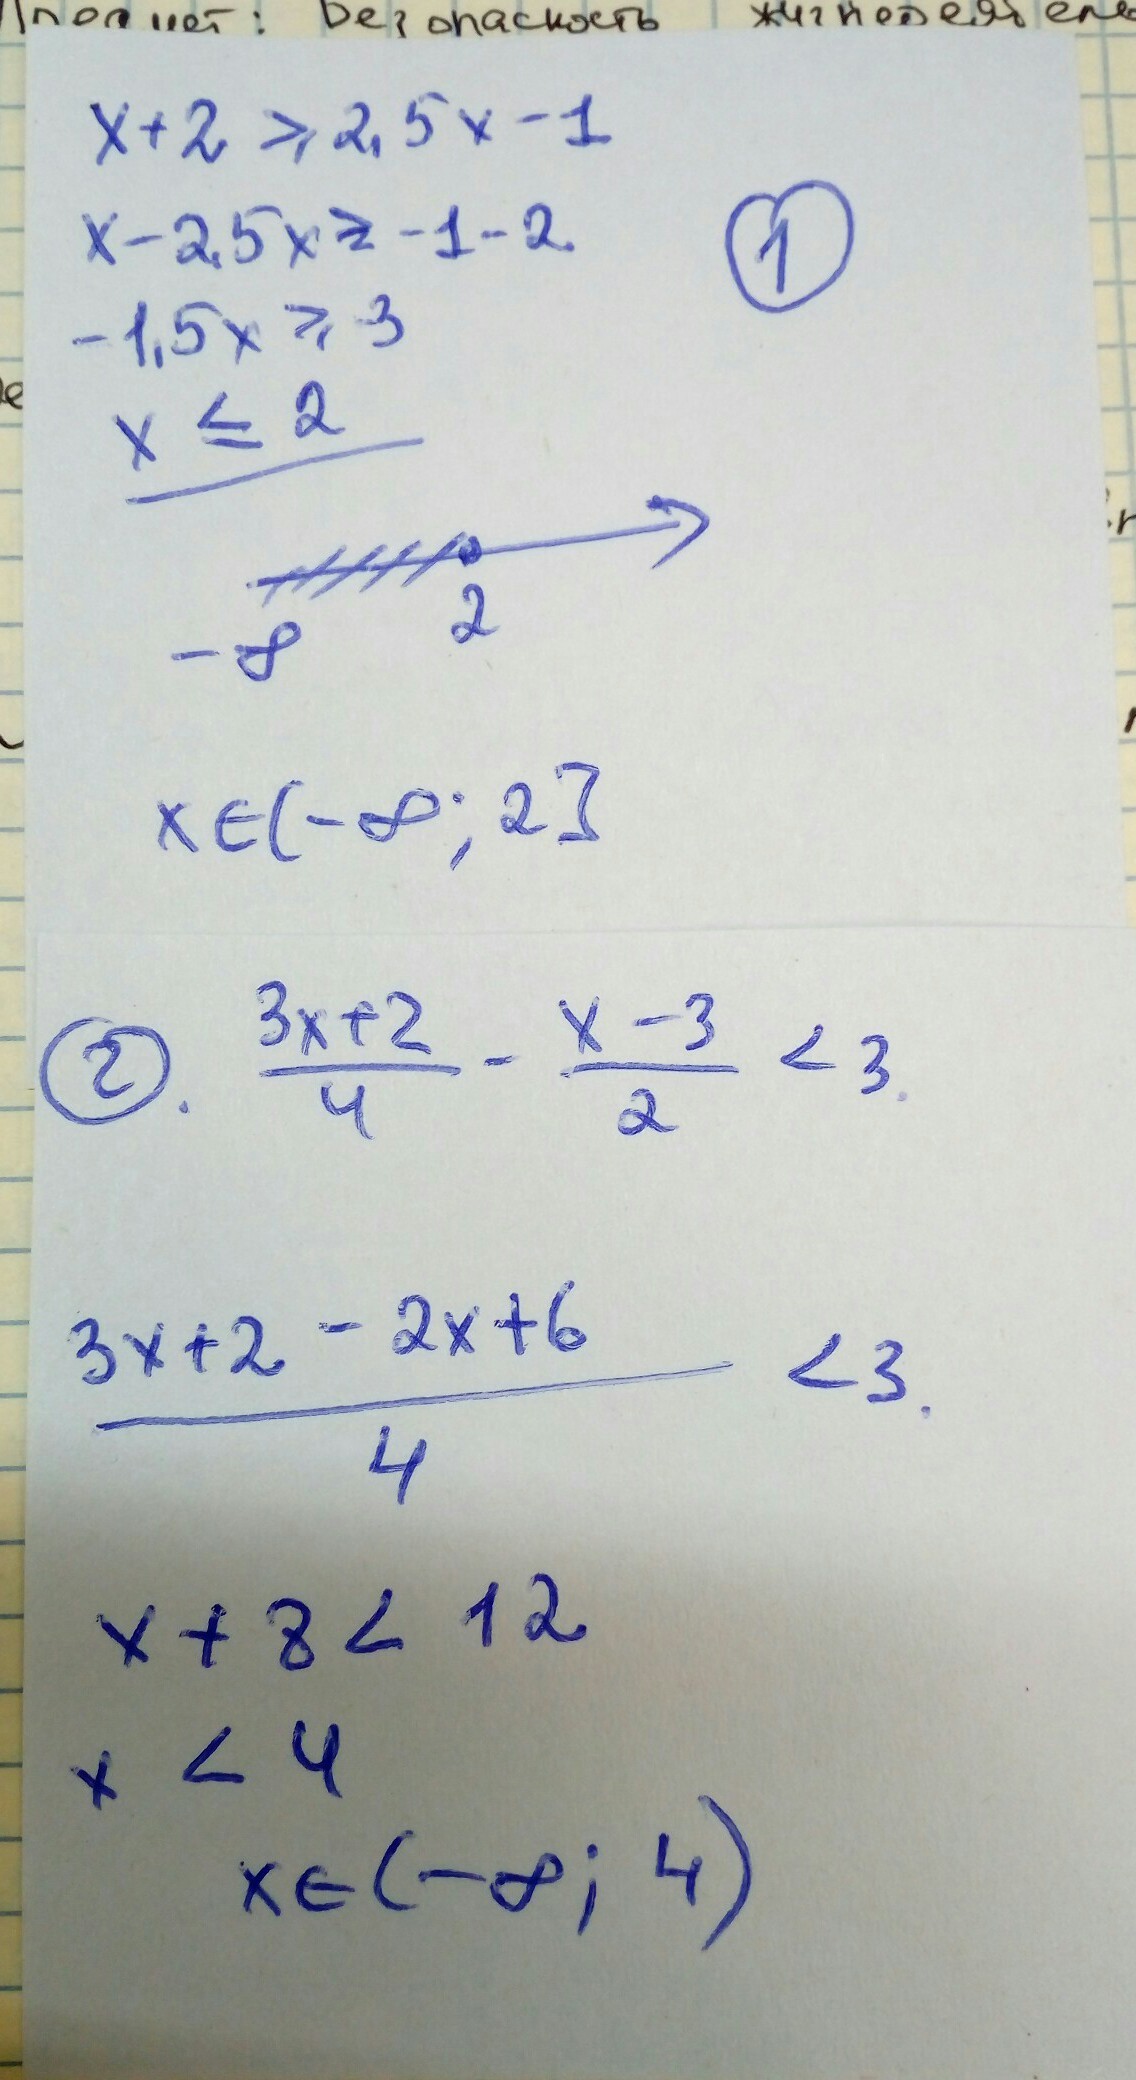 Предмет: Безопасность жизнедеятель
x+2 ⩾ 2,5x-1
x-2,5x ⩾ -1-2
-1,5x ⩾ 3
x ≤ 2
2
-∞
x∈(-∞; 2]
1
2. (3x+2)/4 - (x-3)/2 < 3.
(3x+2 - 2x+6)/4 < 3.
x + 8 < 12
x < 4
x∈(-∞; 4)